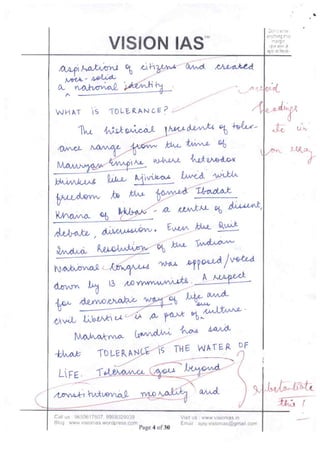 VISION IAS™
aspirations of citizens and created
rock-solid
a national identity
avoid
headings
etc in
an essay
WHAT IS TOLERANCE?
The historical precedents of toler-
ance range from the time of
Mauryan Empire where heterodox
thinkers like Ajivikas lived with
freedom to the famed Ibadat
Khana of Akbar - a centre of dissent,
debate, discussion. Even the Quit
India Resolution of the Indian
National Congress was opposed/voted
down by 13 communists. A respect
for democratic way of life and
civil liberties is a part of our culture.
Mahatma Gandhi has said
that TOLERANCE IS THE WATER OF
LIFE. Tolerance goes beyond
constitutional morality and
substantiate
this!
Call us : 9650617807, 9968029039
Visit us : www.visionias.in
Blog : www.visionias.wordpress.com
Page 4 of 30
Email :